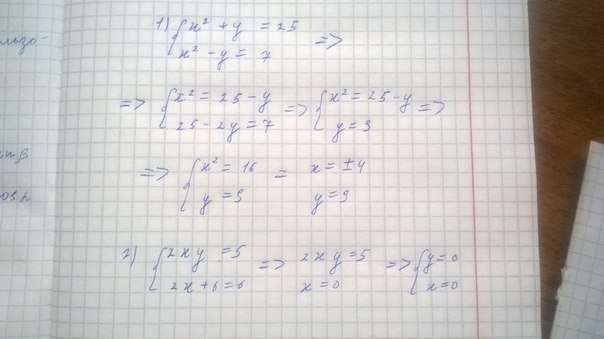 1) { x² + y = 25
x² - y = 7 =>
=> { x² = 25 - y
25 - 2y = 7 => { x² = 25 - y
y = 9 =>
=> { x² = 16
y = 9 = x = ±4
y = 9
2) { 2xy = 5
2x + 6 = 6 => 2xy = 5
x = 0 => { y = 0
x = 0